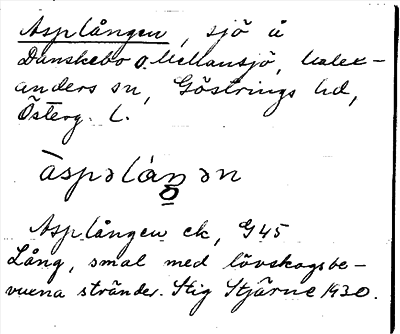 Asplången, sjö å
Danskebo o. Mellansjö, Valex-
anders sn, Göstrings hd,
Österg. l.
àspəláŋən
Asplången ek, G45
Lång, smal med lövskogsbe-
vuxna stränder. Stig Stjärne 1930.